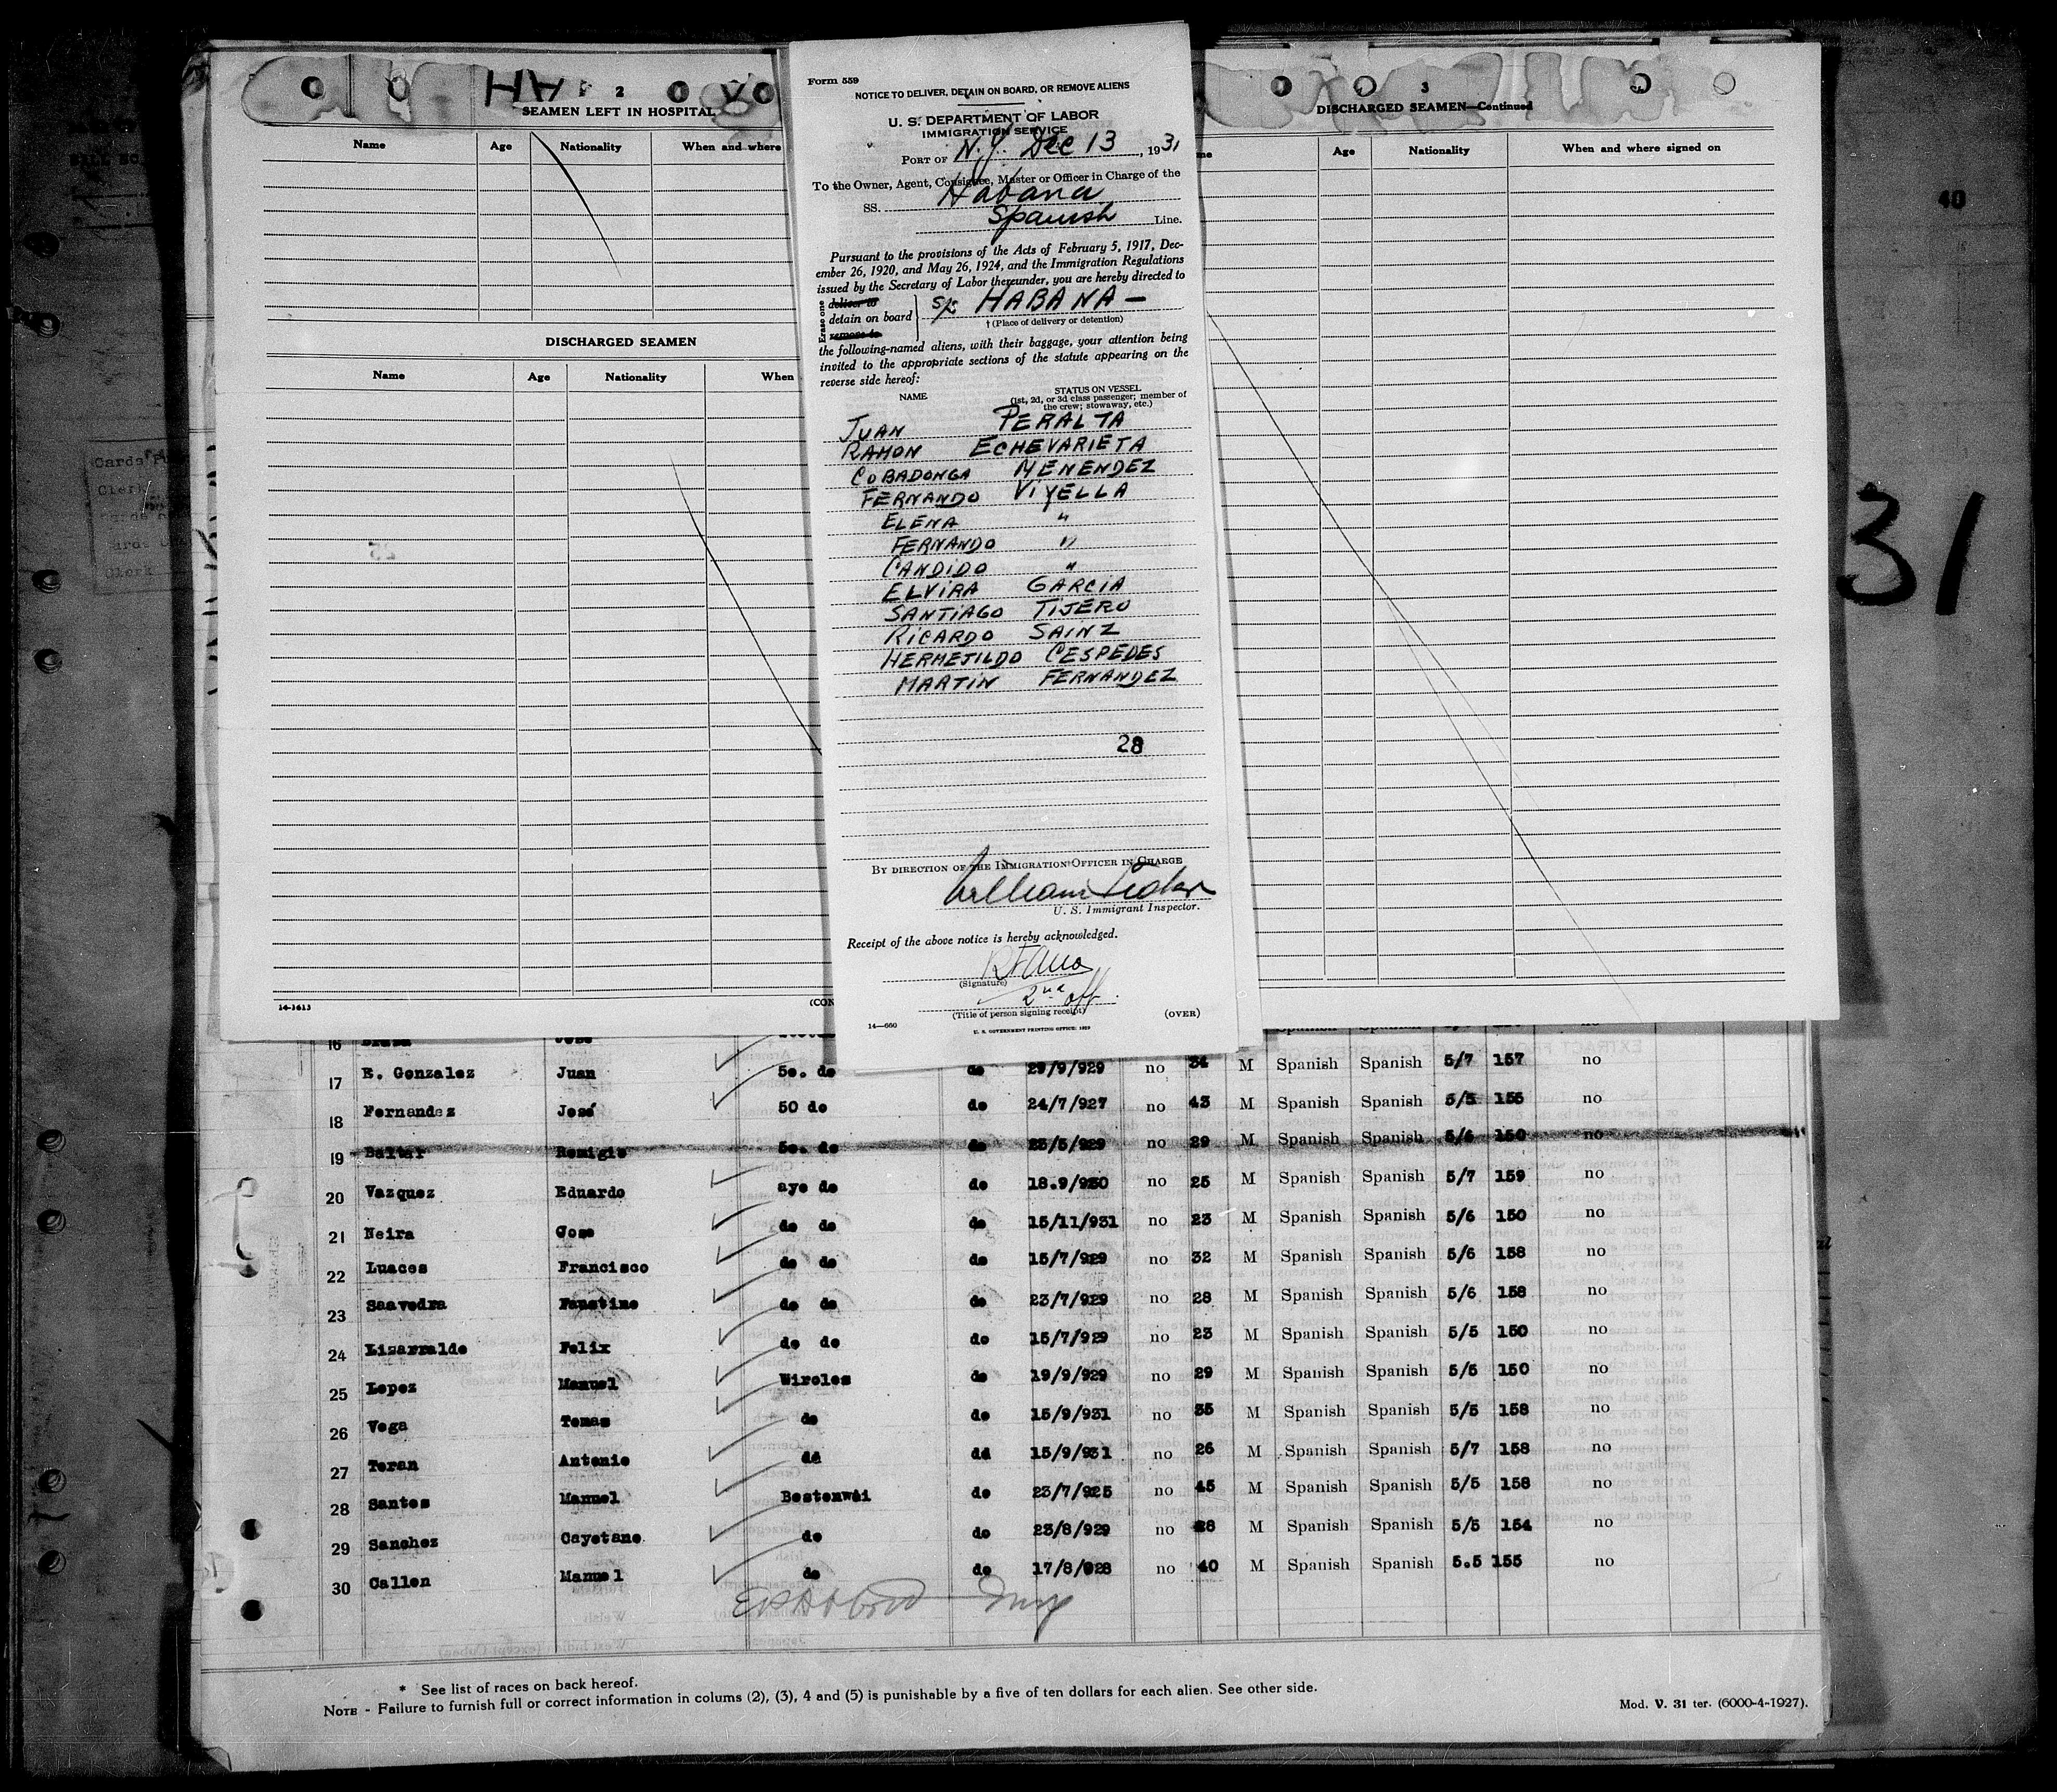 2
SEAMEN LEFT IN HOSPITAL
Name Age Nationality When and where
DISCHARGED SEAMEN
Name Age Nationality When
14-1613
(CON
Form 559
NOTICE TO DELIVER, DETAIN ON BOARD, OR REMOVE ALIENS
U. S. DEPARTMENT OF LABOR
IMMIGRATION SERVICE
PORT OF N.Y. Dec 13, 1931
To the Owner, Agent, Consignee, Master or Officer in Charge of the
SS. Habana
Spanish Line.
Pursuant to the provisions of the Acts of February 5, 1917, Dec-
ember 26, 1920, and May 26, 1924, and the Immigration Regulations
issued by the Secretary of Labor thereunder, you are hereby directed to
Erase one
deliver to
detain on board
remove to
HABANA —
† (Place of delivery or detention)
the following-named aliens, with their baggage, your attention being
invited to the appropriate sections of the statute appearing on the
reverse side hereof:
NAME
STATUS ON VESSEL
(1st, 2d, or 3d class passenger; member of
the crew; stowaway, etc.)
JUAN PERALTA
RAMON ECHEVARIETA
COBADONGA MENENDEZ
FERNANDO VIYELLA
ELENA "
FERNANDO "
CANDIDO "
ELVIRA GARCIA
SANTIAGO TIJERO
RICARDO SAINZ
HERMEJILDO CESPEDES
MARTIN FERNANDEZ
28
BY DIRECTION OF THE IMMIGRATION OFFICER IN CHARGE
William
U. S. Immigrant Inspector.
Receipt of the above notice is hereby acknowledged.
(Signature)
2nd off.
(Title of person signing receipt)
14—660
(OVER)
U. S. GOVERNMENT PRINTING OFFICE: 1929
3
DISCHARGED SEAMEN—Continued
me Age Nationality When and where signed on
40
31
Cards
Clerk
Clerk
16
17 E. Gonzalez Juan 5o. do do 29/9/929 no 34 M Spanish Spanish 5/7 157 no
18 Fernandez José 50 do do 24/7/927 no 43 M Spanish Spanish 5/5 155 no
19 Baltar Remigio 5o. do do 25/5/929 no 29 M Spanish Spanish 5/6 150 no
20 Vazquez Eduardo ayo do do 18.9/930 no 25 M Spanish Spanish 5/7 159 no
21 Neira Jose do do do 15/11/931 no 23 M Spanish Spanish 5/6 150 no
22 Luaces Francisco do do do 15/7/929 no 32 M Spanish Spanish 5/6 158 no
23 Saavedra Faustino do do do 23/7/929 no 28 M Spanish Spanish 5/6 158 no
24 Lizarralde Felix do do do 15/7/929 no 23 M Spanish Spanish 5/5 150 no
25 Lopez Manuel Wireles do 19/9/929 no 29 M Spanish Spanish 5/5 150 no
26 Vega Tomas do do 15/9/931 no 35 M Spanish Spanish 5/5 158 no
27 Teran Antonio dd dd 15/9/931 no 26 M Spanish Spanish 5/7 158 no
28 Santos Manuel Bostonwái do 23/7/925 no 45 M Spanish Spanish 5/5 158 no
29 Sanchez Cayetano do do 23/8/929 no 28 M Spanish Spanish 5/5 154 no
30 Callen Manuel do do 17/8/928 no 40 M Spanish Spanish 5.5 155 no
* See list of races on back hereof.
NOTE - Failure to furnish full or correct information in colums (2), (3), 4 and (5) is punishable by a five of ten dollars for each alien. See other side.
Mod. V. 31 ter. (6000-4-1927).